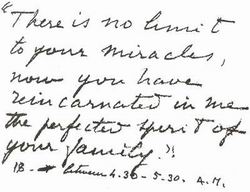 "There is no limit
to your miracles,
now you have
reincarnated in me
the perfected spirit of
your family."
18 - between 4.30 - 5.30. A.M.